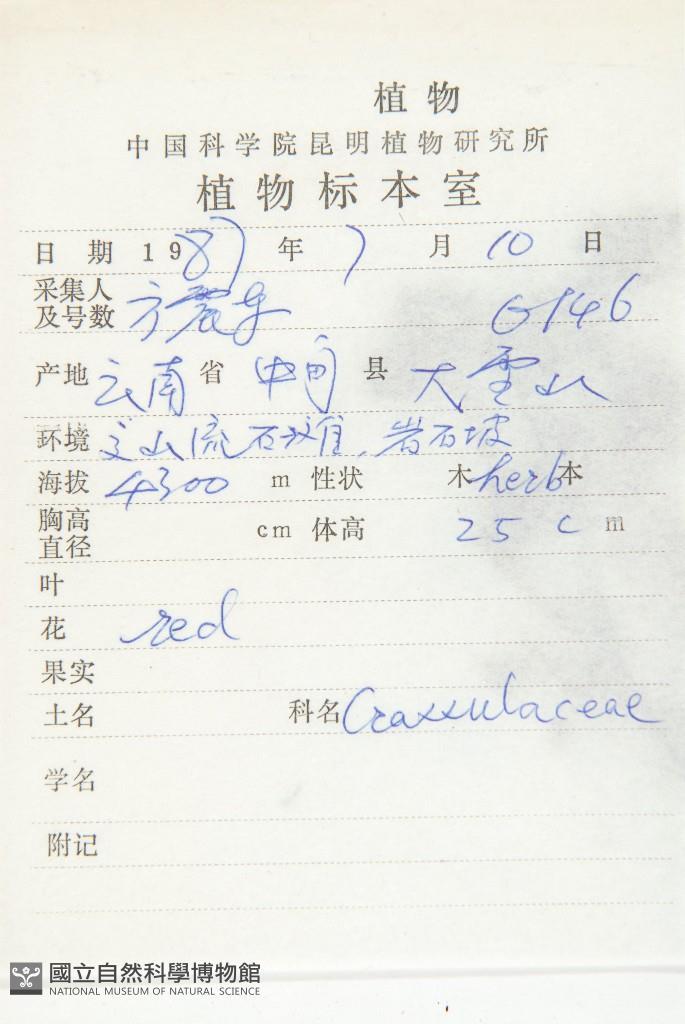 植物
中国科学院昆明植物研究所
植物标本室
日期 1987年 7月 10日
采集人
及号数 方震东 G146
产地 云南省 中甸县 大雪山
环境 流石滩,岩石坡
海拔 4300 m 性状 木 herb 本
胸高
直径 cm 体高 25 cm
叶
花 red
果实
土名 科名 Crassulaceae
学名
附记
國立自然科學博物館
NATIONAL MUSEUM OF NATURAL SCIENCE